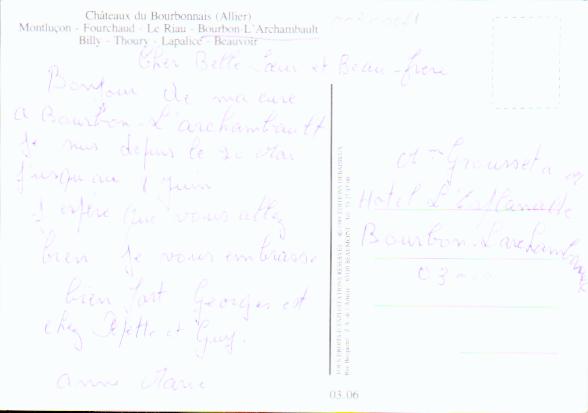 Châteaux du Bourbonnais (Allier)
Montluçon - Fourchaud - Le Riau - Bourbon-L'Archambault
Billy - Thoury - Lapalice - Beauvoir
Cher Belle-Sœur et Beau-frere
Bonjour de ma cure
a Bourbon-L'archambault
Je suis depuis le 20 Mai
jusqu au 1 Juin
J espère que vous allez
bien Je vous embrasse
bien fort Georges est
chez Pepette et Guy.
Anne Marie
Grousset
Hotel L'Esplanade
Bourbon-L'archambault
03
03.06